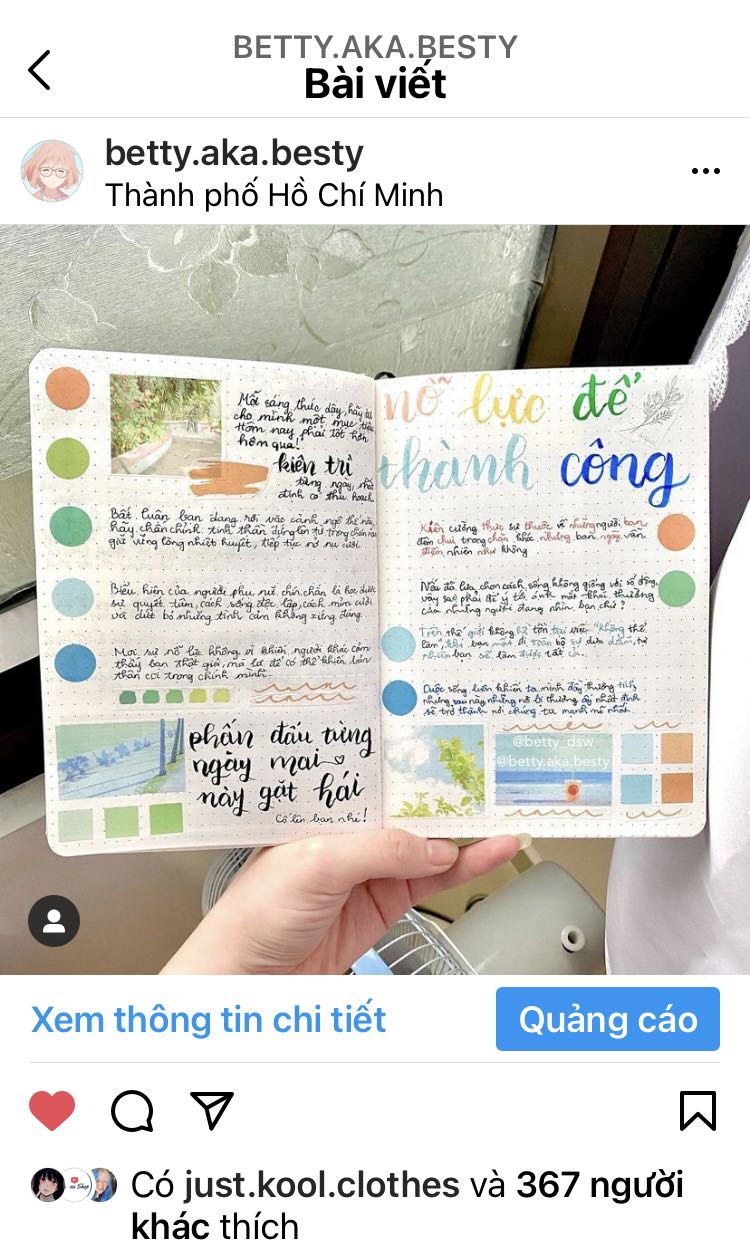 BETTY.AKA.BESTY
Bài viết
betty.aka.besty
Thành phố Hồ Chí Minh
Mỗi sáng thức dậy, hãy đặt
cho mình một mục tiêu
Hôm nay phải tốt hơn
hôm qua!
kiên trì
từng ngày, nhất
định có thu hoạch
Bất luận bạn đang rơi vào cảnh ngộ thế nào,
hãy chấn chỉnh tinh thần đứng lên từ trong
giữ vững lòng nhiệt huyết, tiếp tục nở nụ cười
Biểu hiện của người phụ nữ chín chắn là học được
sự quyết tâm, cách sống độc lập, cách mỉm cười
và dứt bỏ những tình cảm không xứng đáng.
Mọi sự nỗ lực không vì khiến người khác cảm
thấy bạn thật giỏi, mà là để có thể khiến bản
thân coi trọng chính mình.
phấn đấu từng
ngày mai
này gặt hái
Cố lên bạn nhé!
nỗ lực để
thành công
Kiên cường thực sự thuộc về những người ban
đêm chui trong chăn khóc, nhưng ban ngày vẫn
điềm nhiên như không
Nếu đã lựa chọn cách sống không giống với số đông,
vậy sao phải để ý tới ánh mắt khác thường
của những người đang nhìn bạn chứ?
Trên thế giới không hề tồn tại việc "không thể
làm", khi bạn mất đi toàn bộ sự dựa dẫm, tự
nhiên bạn sẽ làm được tất cả.
Cuộc sống luôn khiến ta mình đầy thương tích,
nhưng sau này những nơi bị thương ấy nhất định
sẽ trở thành nơi chúng ta mạnh mẽ nhất.
@betty_dsw
@betty.aka.besty
Xem thông tin chi tiết
Quảng cáo
Có just.kool.clothes và 367 người
khác thích